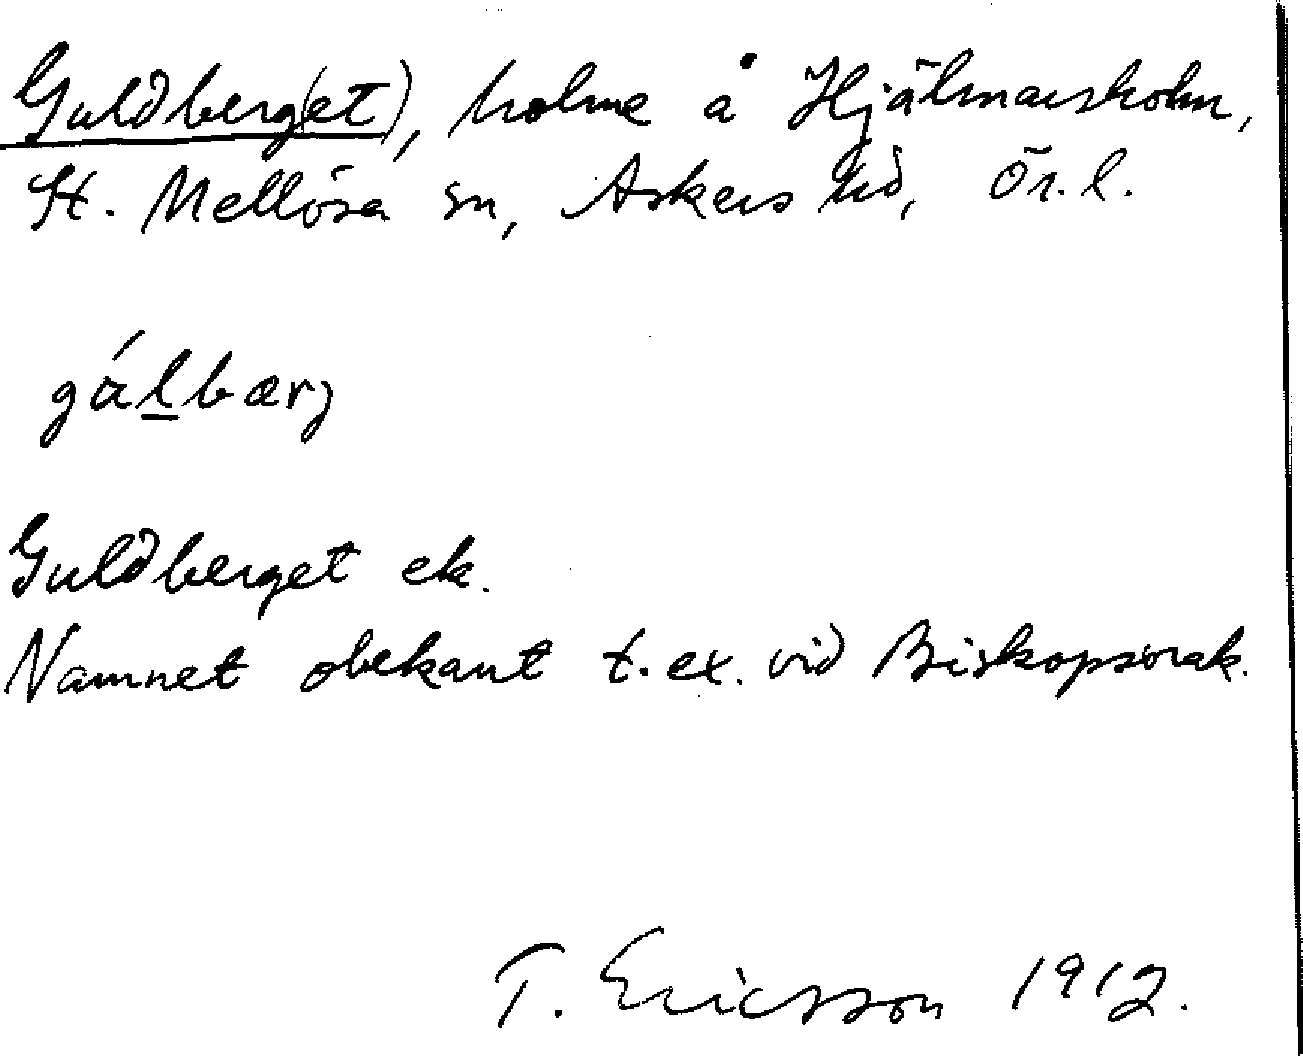 Guldberg(et), holme å Hjälmarsholm,
St. Mellösa sn, Askers hd, Ör. l.
gálbærj
Guldberget ek.
Namnet obekant t.ex. vid Biskopsvrak.
T. Ericsson 1912.